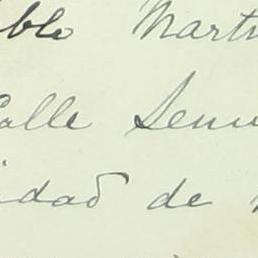 ablo Mart
Calle Senu
idad de